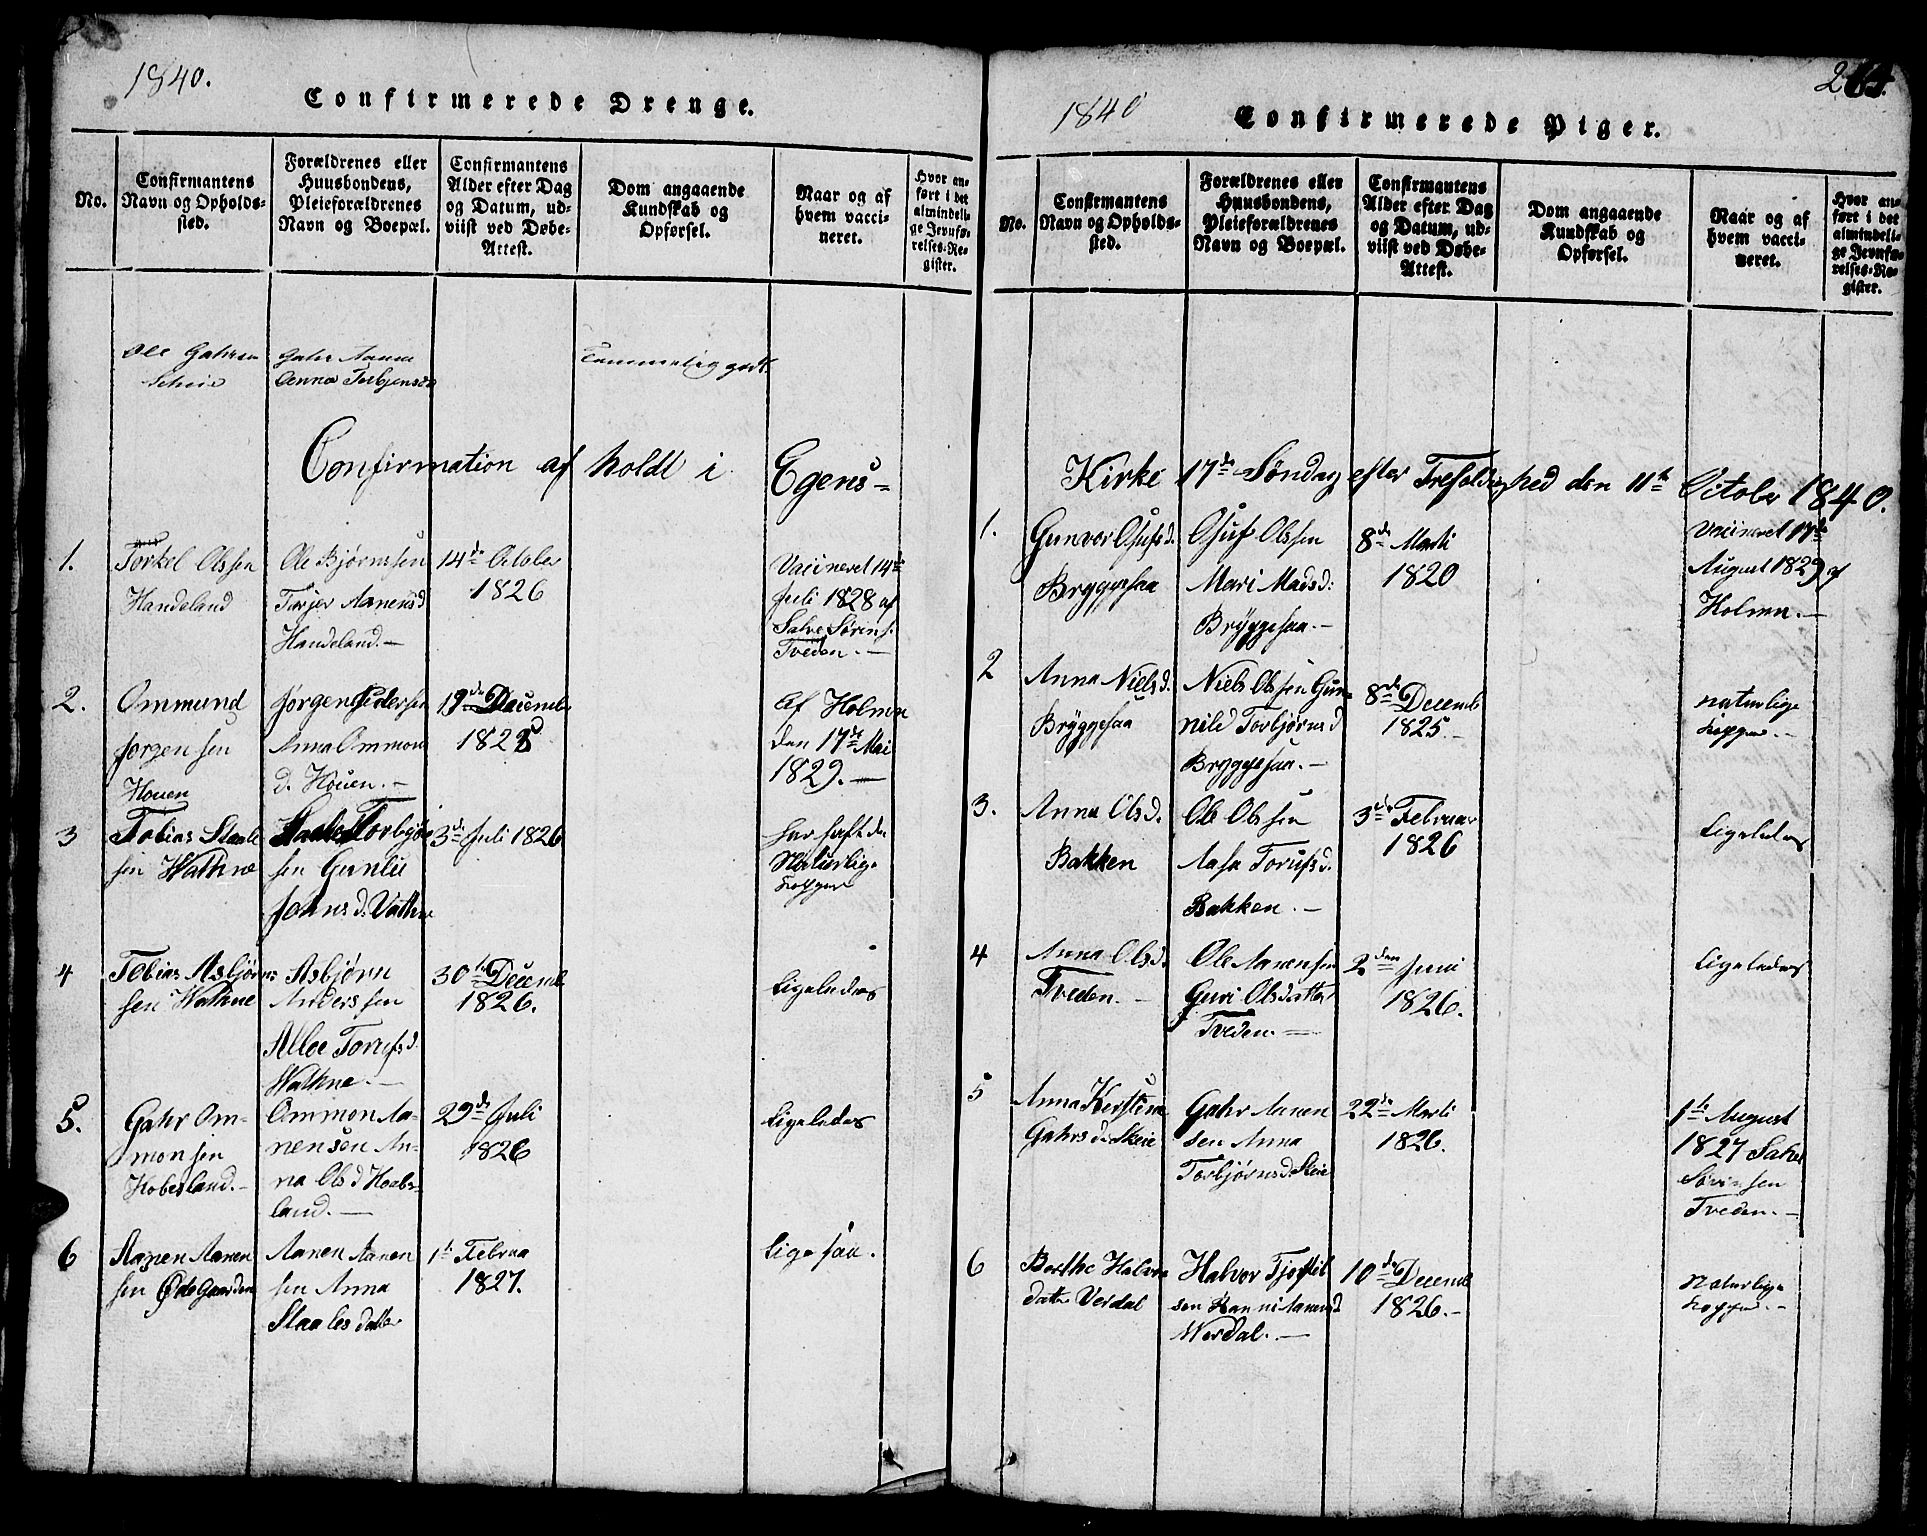 1840.
Confirmerede Drenge.
No.
Confirmantens
Navn og Opholds-
sted.
Forældrenes eller
Huusbondens,
Pleieforældrenes
Navn og Boepæl.
Confirmantens
Alder efter Dag
og Datum, ud-
viist ved Døbe-
Attest.
Dom angaaende
Kundskab og
Opførsel.
Naar og af
hvem vacci-
neret.
Hvor an-
ført i det
almindeli-
ge Jevnfø-
relses-Re-
gister.
Ole Gahrsen
Scheie
Gahr Aanen
Anna Torbjensd
Temmelig godt.
Confirmation af holdt i Egens-
1.
Torkel Olssen
Handeland
Ole Bjørnssen
Torjer Aanensd
Handeland.-
14de October
1826
Vaccineret 14de
Juli 1828 af
Salve Sørens.
Tveden.-
2.
Ommund
Jørgensen
Houen
Jørgen Pedersen
Anna Ommon
d. Houen.-
19de Decemb.
1825
Af Holmen
den 17de Mai
1829.-
3
Tobias Staale
sen Wathne
Staale Torbjøn
sen Gunlei
Johns d. Vathne
3de Juli 1826
har haft de
Naturlige
Kopper
4
Tobias Asbjørns
sen Wathne
Asbjørn
Anderssen
Alloe Torufsd.
Wathne.-
30te Decemb.
1826.
Ligeledes
5.
Gahr Om-
monsen
Kobesland.-
Ommon Aa-
nensen An-
na Ols d Koabs-
land.-
29de Juli
1826
Ligeledes
6
Aanen Aanen
sen Ødegaarden
Aanen Aanen
sen Anna
Staalesdatter
1te Februa
1827.
Ligesaa.
1840
Confirmerede Piger.
No.
Confirmantens
Navn og Opholds-
sted.
Forældrenes eller
Huusbondens,
Pleieforældrenes
Navn og Boepæl.
Confirmantens
Alder efter Dag
og Datum, ud-
viist ved Døbe-
Attest.
Dom angaaende
Kundskab og
Opførsel.
Naar og af
hvem vacci-
neret.
Hvor an-
ført i det
almindeli-
ge Jevnfø-
relses-Re-
gister.
Kirke 17de Søndag efter Trefoldighed den 11te October 1840.
1.
Gunvor Osufsd.
Bryggesaa
Osuf Olssen
Mari Madsd:
Bryggesaa.-
8de Marti
1820
Vaccineret 17de
August 1829 af
Holmen.-
2
Anna Nielsd.
Bryggesaa
Niels Olssen Gun-
nild Torbjørnsd
Bryggesaa.-
8de Decemb
1825.-
naturlige
Kopper.-
3.
Anna Olsd.
Bakken
Ole Olssen
Aasa Torufsd.
Bakken.-
3de Februar
1826
Ligeledes
4
Anna Olsd.
Tveden.-
Ole Aanensen
Guri Olsdatter
Tveden.-
2den Juni
1826.
Ligeledes
5
Anna Kerstine
Gahrs d. Skeie
Gahr Aanen
sen Anna
Torbjørnsd Skeie
22de Marti
1826.
1te August
1827 Salve
Sørensen
Tveden.-
6
Berthe Halvor
datter Verdal
Halvor Tjøstel
sen Ranni Aanensd
Werdal.-
10de Decemb
1826.-
Naturlige
Kopper.-